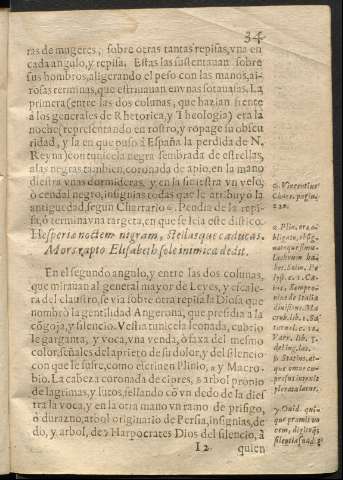 34
ras de mugeres, sobre otras tantas repisas, vna en
cada angulo, y repisa. Estas las sustentauan sobre
sus hombros, aligerando el peso con las manos, ai-
rosas terminas, que estriuauan en vnas sotauasas. La
primera (entre las dos colunas, que hazian frente
â los generales de Rhetorica, y Theologia) era la
noche, representando en rostro, y ropage su obscu
ridad, y la en que puso â España la perdida de N.
Reyna) con tunicela negra sembrada de estrellas,
alas negras tambien, coronada de apio, en la mano
diestra vnas dormideras, y en la siniestra vn velo,
ò cendal negro, insignias todas que le atribuyò la
antiguedad, segun Chartario. Pendia de la repi-
sa, ò termina vna targeta, en que se leia este distico.
Hesperia noctem nigram, stellasque caducas.
Mors rapto Elisabeth sole inimica dedit.
En el segundo angulo, y entre las dos colunas,
que mirauan al general mayor de Leyes, y escale-
ra del claustro, se via sobre otra repisa la Diosa que
nombrò la gentilidad Angerona, que presidia a la
cõgoja, y silencio. Vestia tunicela leonada, cubrio
le garganta, y voca, vna venda, ò faxa del mesmo
color, señales del aprieto de su dolor, y del silencio
con que le sufre, como escriuen Plinio, a y Macro-
bio. La cabeza coronada de cipres, arbol pronio
de lagrimas, y lutos, sellando cõ vn dedo de la dies
tra la voca, y en la otra mano vn ramo de prisigo,
ò durazno, arbol originario de Persia, insignias, de
do, y arbol, de Harpocrates Dios del silencio, â
I 2 quien
Vincentius
Chart. pagin.
222.
a. Plin.
Macro
que omnes cu-
pressus
Ouid. qui-
que premit vo
cem, digitoq;
silentia suadet